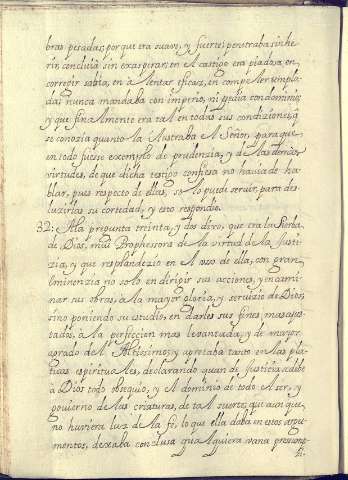 bras pesadas, porque era suave, y fuerte: penetraba sin he-
rir, concluia sin exasperar; en el castigo era piadosa, en
corregir sabia, en alentar eficaz, en compeler templa-
da: nunca mandaba con imperio, ni pedia con dominio;
y que finalmente era tal en todas sus condiziones, q̃
se conozia quanto la ilustraba el Señor, para que
en todo fuesse exemplo de prudenzia, y de las demas
virtudes, de que dicha testigo confiesa no hauia de ha-
blar, pues respecto de ellas, solo puede seruir para des-
luzirlas su cortedad, y esto responde.
32: A la pregunta treinta, y dos dixo, que era la Sierba
de Dios, mui Prophesora de la virtud de la Justi-
zia, y que resplandezio en el uso de ella, con gran
eminenzia no solo en dirigir sus acciones, y encami-
nar sus obras, a la mayor gloria, y seruizio de Dios,
sino poniendo su estudio, en darles sus fines, mas ajus-
tados, a la perfeccion mas leuantada, y de mayor
agrado de el Altissimo; y apretaba tanto en las pla-
ticas espirituales, declarando quan de Justicia es debi-
a Dios todo obsequio, y el dominio de todo el ser, y
gouierno de las criaturas, de tal suerte, que aunque
no huuiera luz de la fe, lo que ella daba en estos argu-
mentos, dexaba conclusa qualquiera vana presump-